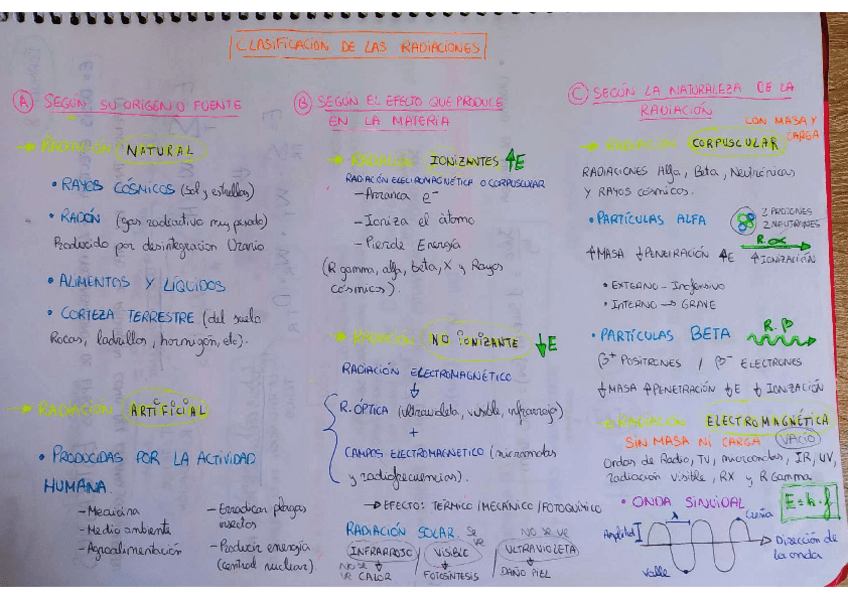 CLASIFICACIÓN DE LAS RADIACIONES
A SEGÚN SU ORIGEN O FUENTE
→ RADIACIÓN NATURAL
• RAYOS CÓSMICOS (sol y estrellas)
• RADÓN (gas radiactivo muy pesado)
Producido por desintegración Uranio
• ALIMENTOS Y LÍQUIDOS
• CORTEZA TERRESTRE (del suelo
Rocas, ladrillos, hormigón, etc).
→ RADIACIÓN ARTIFICIAL
• PRODUCIDAS POR LA ACTIVIDAD
HUMANA.
- Medicina
- Medio ambiente
- Agroalimentación
- Erradican plagas
insectos
- Producir energía
(central nuclear).
B SEGÚN EL EFECTO QUE PRODUCE
EN LA MATERIA
→ RADIACIÓN IONIZANTES ↑E
RADIACIÓN ELECTROMAGNÉTICA O CORPUSCULAR
- Arranca e⁻
- Ioniza el átomo
- Pierde Energía
(R gamma, alfa, beta, X y Rayos
cósmicos).
→ RADIACIÓN NO IONIZANTE ↓E
RADIACIÓN ELECTROMAGNÉTICO
↓
R. ÓPTICA (ultravioleta, visible, infrarroja)
+
CAMPOS ELECTROMAGNETICO (microondas
y radiofrecuencias).
→ EFECTO: TÉRMICO / MECÁNICO / FOTOQUÍMICO
RADIACIÓN SOLAR
INFRARROJO / VISIBLE / ULTRAVIOLETA
NO SE VE CALOR
SE VE
FOTOSÍNTESIS
NO SE VE
DAÑO PIEL
C SEGÚN LA NATURALEZA DE LA
RADIACIÓN
→ RADIACIÓN CORPUSCULAR CON MASA Y CARGA
RADIACIONES Alfa, Beta, Neutrónicas
Y RAYOS cósmicos.
• PARTÍCULAS ALFA 2 PROTONES
2 NEUTRONES
R. α
↑MASA ↓PENETRACIÓN ↑E ↑IONIZACIÓN
• EXTERNO - Inofensivo
• INTERNO → GRAVE
• PARTÍCULAS BETA R. β
β⁺ POSITRONES / β⁻ ELECTRONES
↓MASA ↑PENETRACIÓN ↓E ↓IONIZACIÓN
RADIACIÓN ELECTROMAGNÉTICA
SIN MASA NI CARGA VACÍO
Ondas de Radio, TV, microondas, IR, UV,
radiación visible, RX y R Gamma
• ONDA SINUIDAL E = h · f
Amplitud λ Dirección de
la onda
Valle